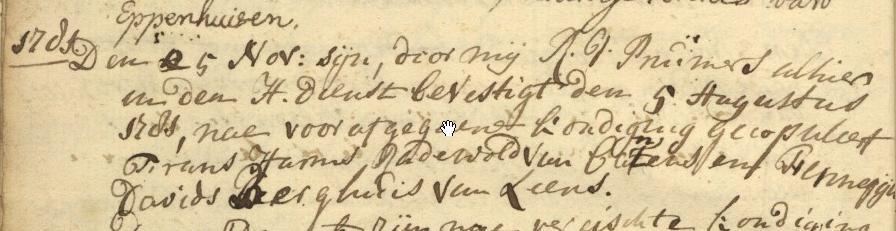 van
Eppenhuisen.
1781 Den 25 Nov: sijn, door mij R. J. Prümers alhier
in den H. Dienst bevestigt den 5 Augustus
1781, nae voorafgegaene kondiging gecopuleert
Frans Harms Radewold van Leens en Fennegijn
Davids Berghuis van Leens.
zijn nae vereischte kondiging